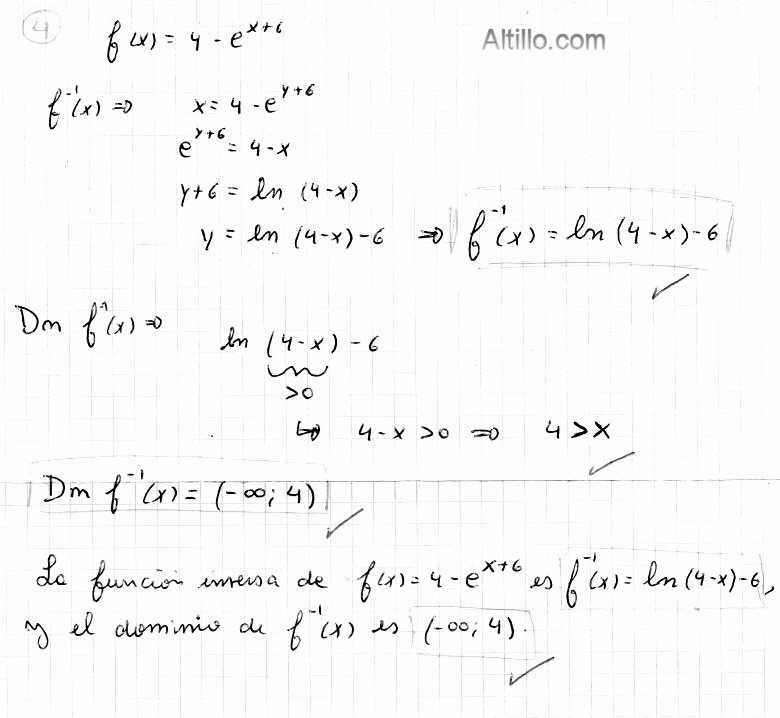 4
f(x) = 4 - e^{x+6}
Altillo.com
f^{-1}(x) ⇒ x = 4 - e^{y+6}
e^{y+6} = 4 - x
y+6 = ln (4-x)
y = ln (4-x) - 6 ⇒ f^{-1}(x) = ln (4-x) - 6
Dm f^{-1}(x) ⇒ ln (4-x) - 6
>0
↳ 4-x >0 ⇒ 4 > x
Dm f^{-1}(x) = (-∞; 4)
La función inversa de f(x) = 4 - e^{x+6} es f^{-1}(x) = ln (4-x) - 6,
y el dominio de f^{-1}(x) es (-∞; 4).